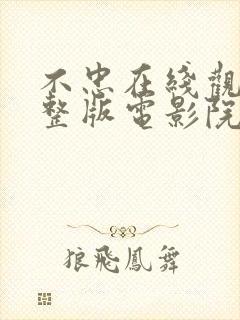 不忠在綫觀
整版電影院
狼飛鳳舞